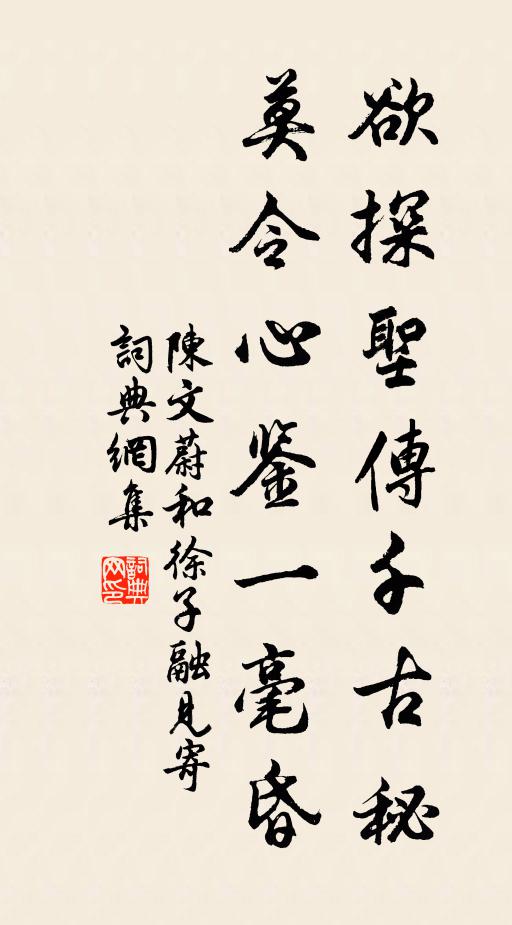 欲探聖傳千古秘
莫令心鉴一毫昏
陳文蔚和徐子融見寄
詞典網集
詞典网印